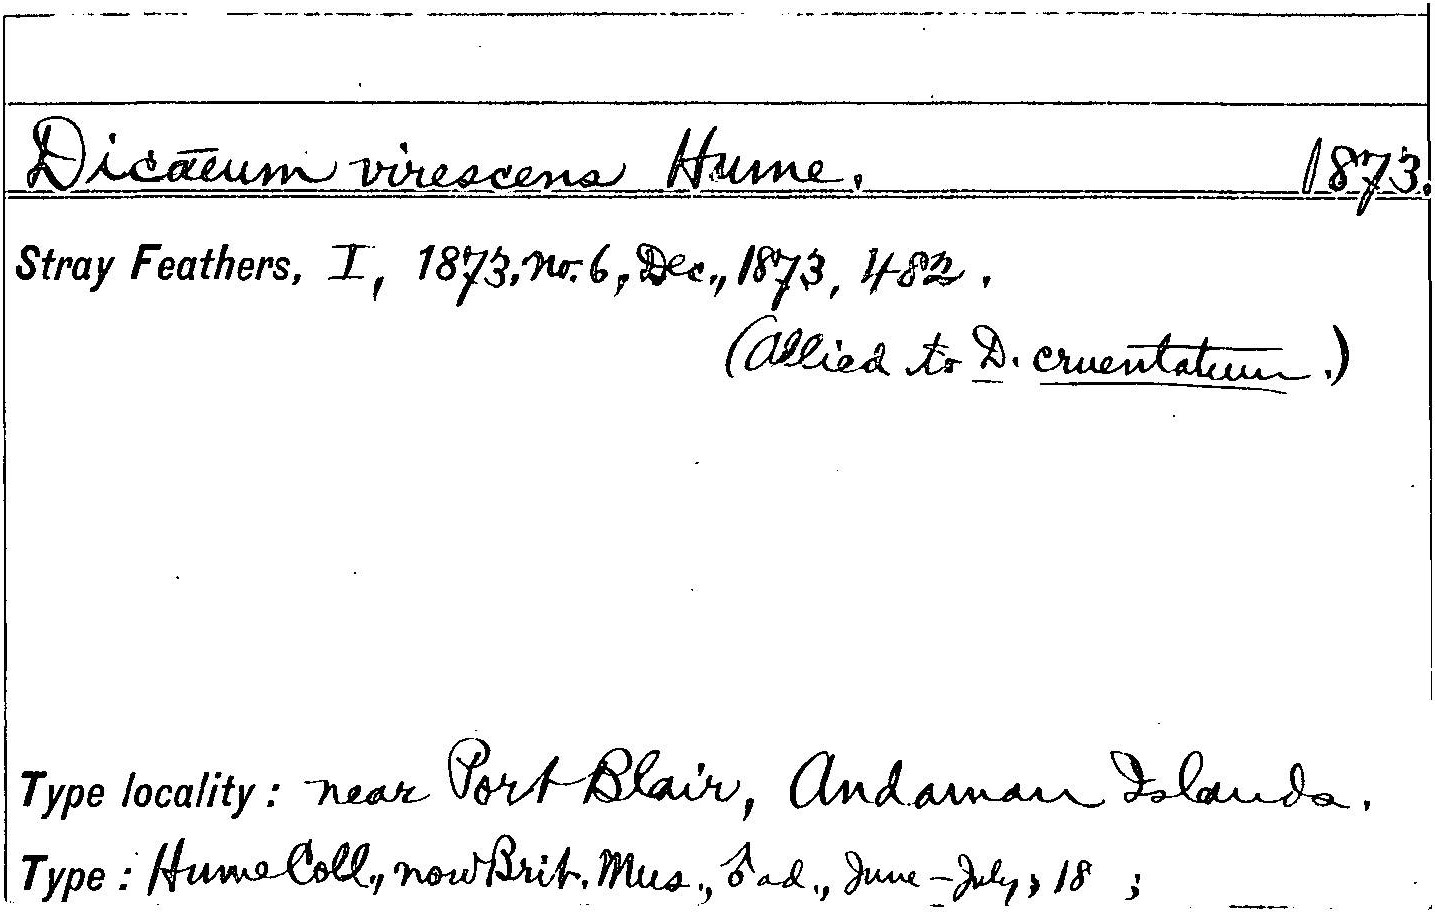 Dicaeum virescens Hume. 1873.
Stray Feathers, I, 1873, no. 6, Dec., 1873, 482.
(Allied to D. cruentatum.)
Type locality: near Port Blair, Andaman Islands.
Type: Hume Coll., now Brit. Mus., ♂ ad., June-July, 18 ;